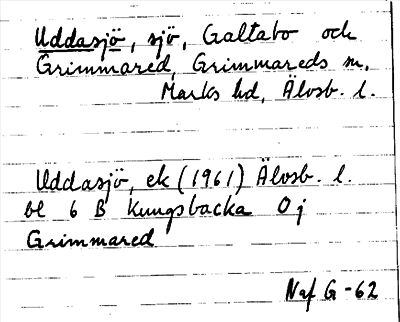 Uddasjö, sjö, Galtabo och
Grimmared, Grimmareds sn,
Marks hd, Älvsb. l.
Uddasjö, ek (1961) Älvsb. l.
bl 6 B Kungsbacka 0 j
Grimmared
Naf G-62